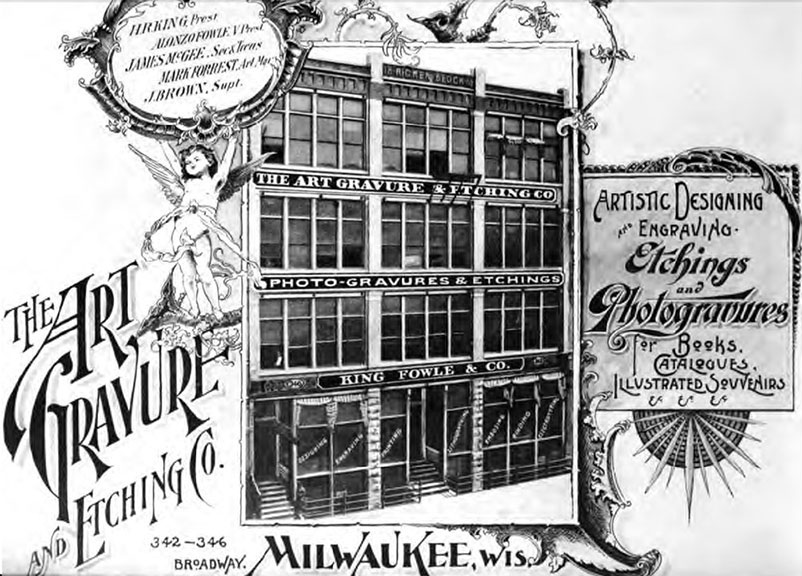 H.R. KING, Prest
ALONZO FOWLE, V. Prest.
JAMES McGEE, Sec & Treas
MARK FORREST, Art. Mgr
J. BROWN, Supt.
RICKER BLOCK
THE ART GRAVURE & ETCHING CO
PHOTO-GRAVURES & ETCHINGS
KING FOWLE & CO.
DESIGNING
ENGRAVING
PRINTING
EMBOSSING
BINDING
THE ART
GRAVURE
AND ETCHING CO.
342–346
BROADWAY.
MILWAUKEE, WIS.
ARTISTIC DESIGNING
AND ENGRAVING-
Etchings
and
Photogravures
for BOOKS,
CATALOGUES,
ILLUSTRATED SOUVENIRS
& & &